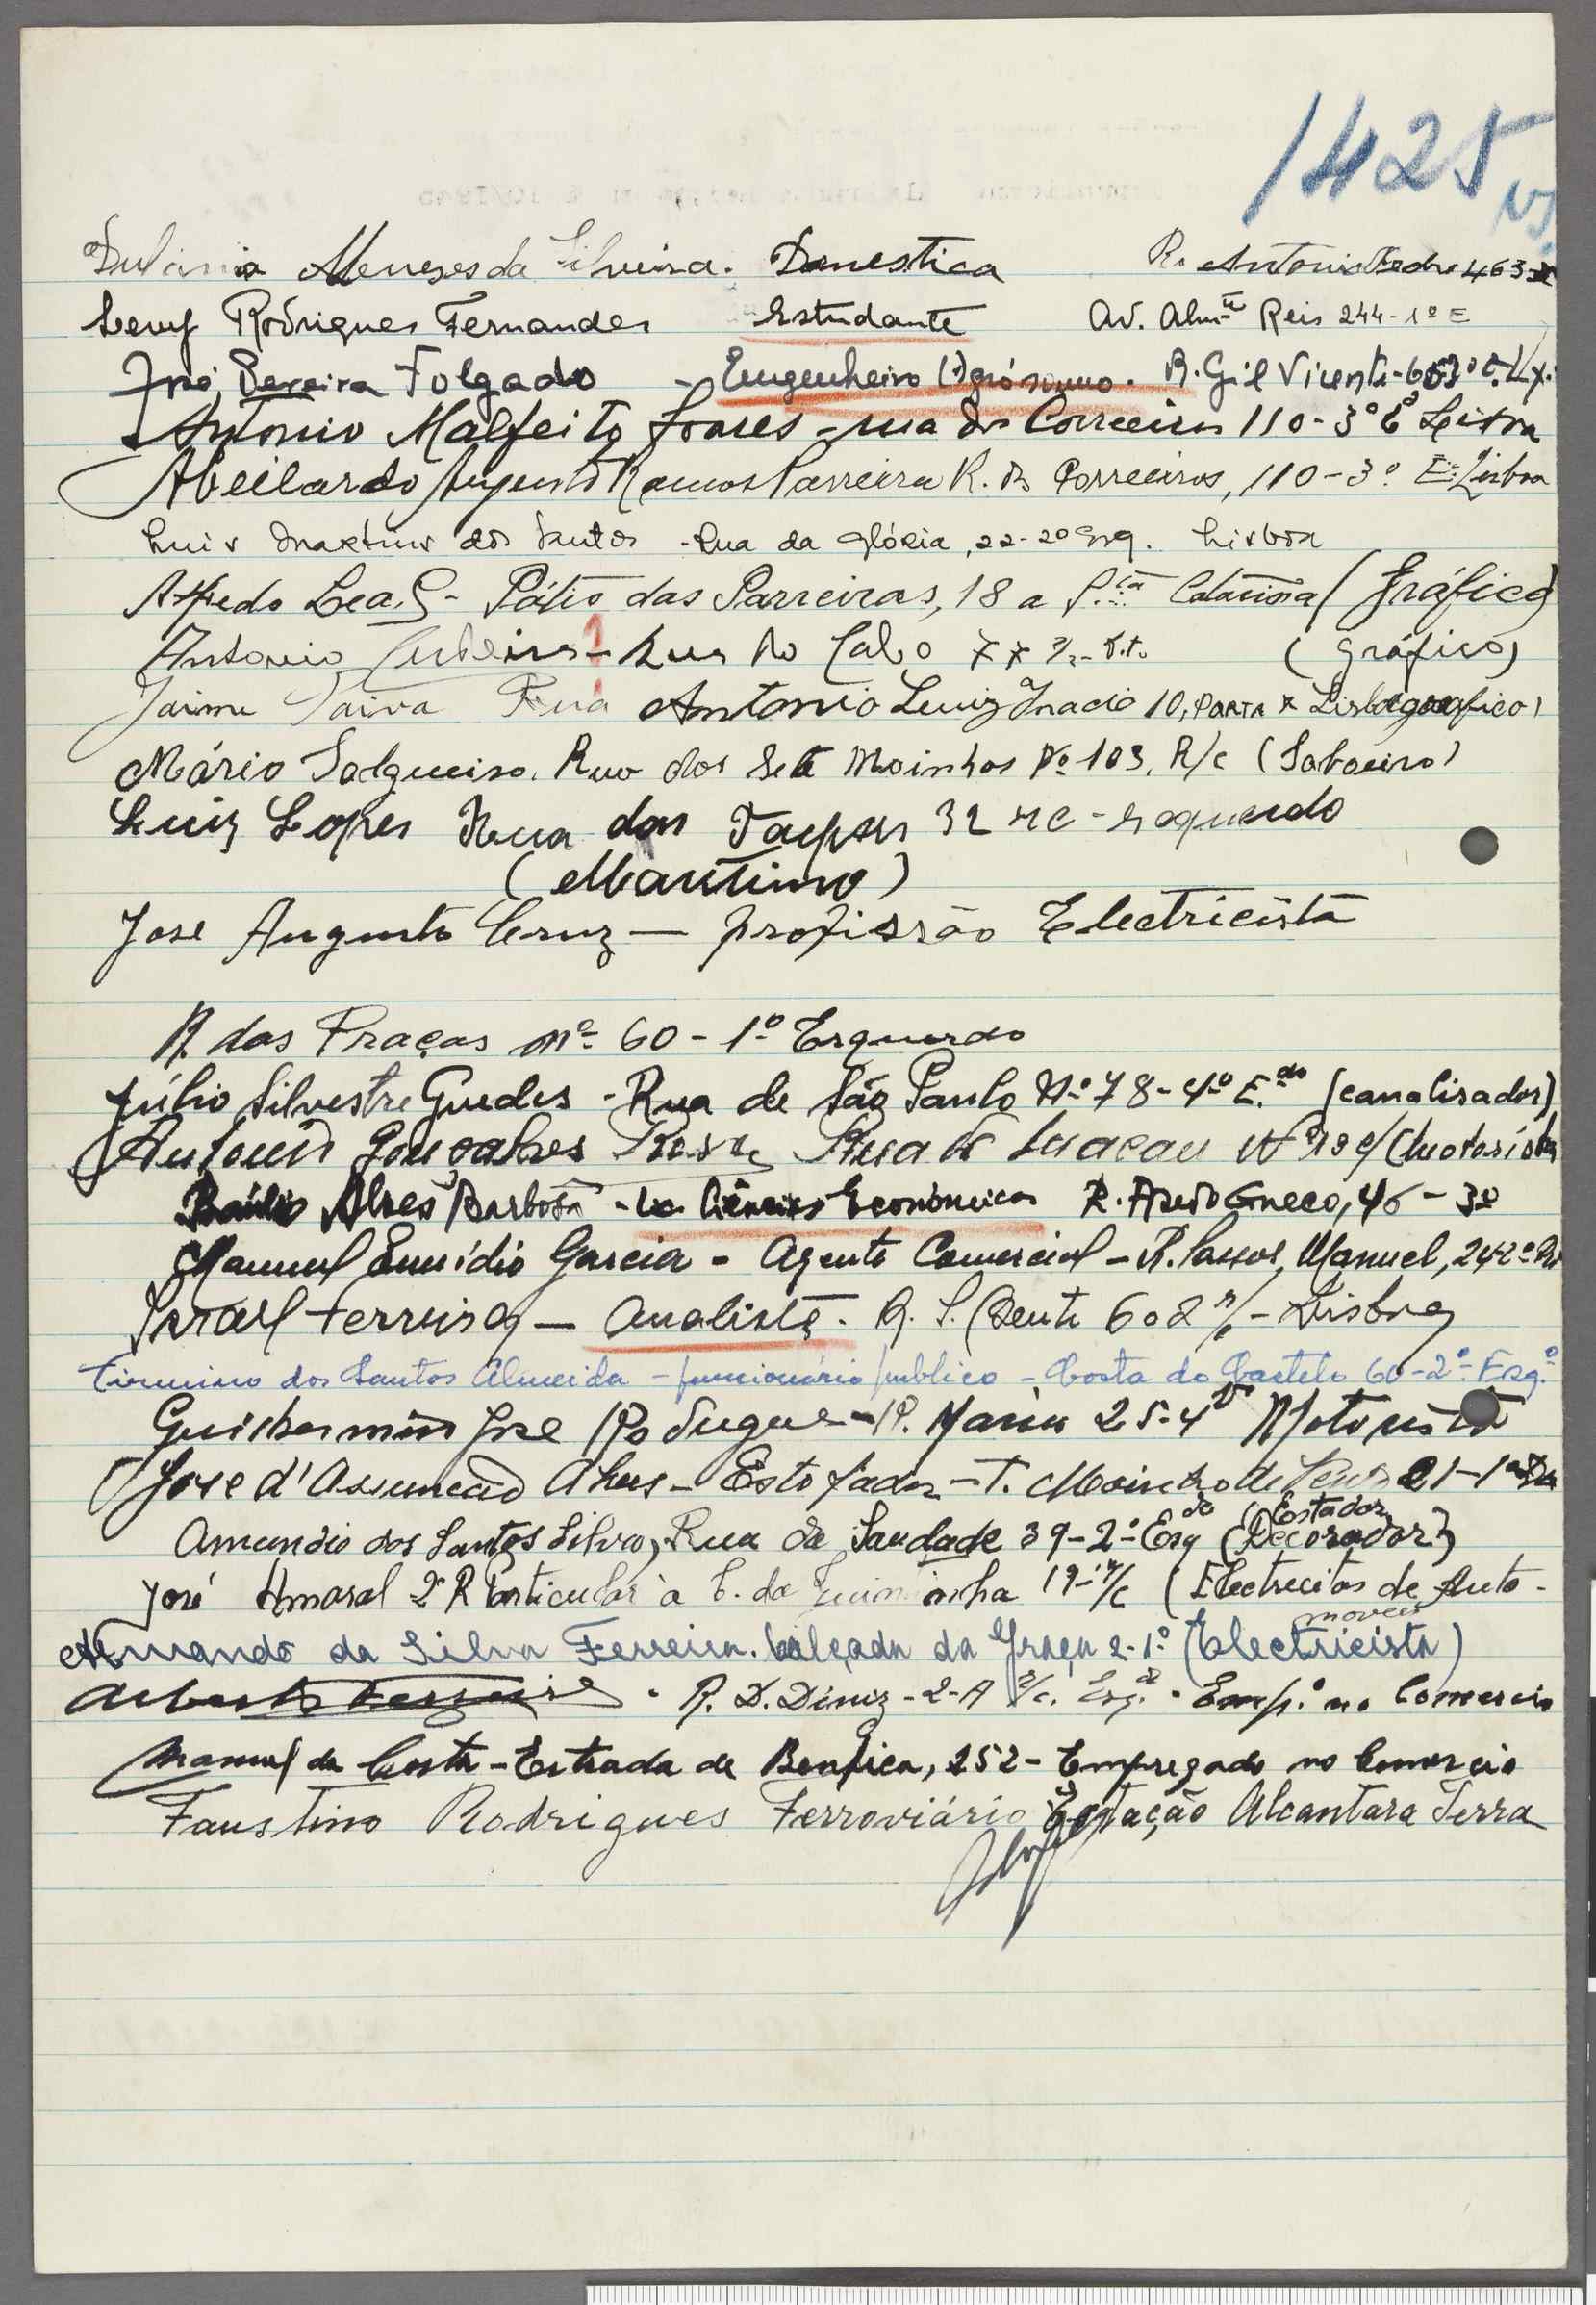 1425
Meneses da Silveira. Domestica R. Antonio Pedro 463
Levy Rodrigues Fernandes Estudante Av. Almte Reis 244-1º E
José Pereira Folgado - Engenheiro Agrónomo. R. Gil Vicente
Antonio Malfeito Soares - rua dos Correeiros 110-3º E Lisboa
Abeilardo Augusto Ramos Parreira R. dos Correeiros, 110-3º E. Lisboa
Luis Martins dos Santos - Rua da Glória, 22-2º Esq. Lisboa
Alfredo Leal - Pátio das Parreiras, 18 a S.ta Catarina (Gráfico)
Antonio - Rua do Cabo (gráfico)
Jaime Paiva Rua Antonio Luiz Inacio 10, Porta Lisboa grafico)
Mário Salgueiro. Rua dos Sete Moinhos Nº 103, R/c
Luiz Lopes Rua das Taipas 32 rc - esquerdo
(Maritimo)
José Augusto Cruz — profissão Electricista
R. das Praças nº 60 - 1º Esquerdo
Júlio Silvestre Guedes - Rua de São Paulo Nº 78-4º E.do (canalisador)
António Gonçalves Rosa Rua de Macau Nº (Motorista
Basilio Alves Barbosa - Lic. Ciências Económicas R. Azedo Gneco, 46-3º
Manuel Emidio Garcia - Agente Comercial - R. Passos Manuel, 24-2º
Israel Ferreira — Analista - Lisboa
Firmino dos Santos Almeida - funcionário publico - Costa do Castelo 60-2º Esq.º
Guilhermino José Rodrigues - R. Maria 25-4º Motorista
José d'Assunção Alves - Estofador - T. Moinho de Vento 21-1º
Amandio dos Santos Silva, Rua da Saudade 39-2º Esqdo (Estador
Decorador)
José Amaral 2ª R. Particular à 19-r/c (Electrecitas de Auto-
moveis
Armando da Silva Ferreira. Calçada da Graça 2-1º (Electricista)
R. D. Diniz - 2-A r/c. Esq.do - Emp.º no Comercio
Manuel da Costa - Estrada de Benfica, 252 - Empregado no Comercio
Faustino Rodrigues Ferroviário Estação Alcantara Terra